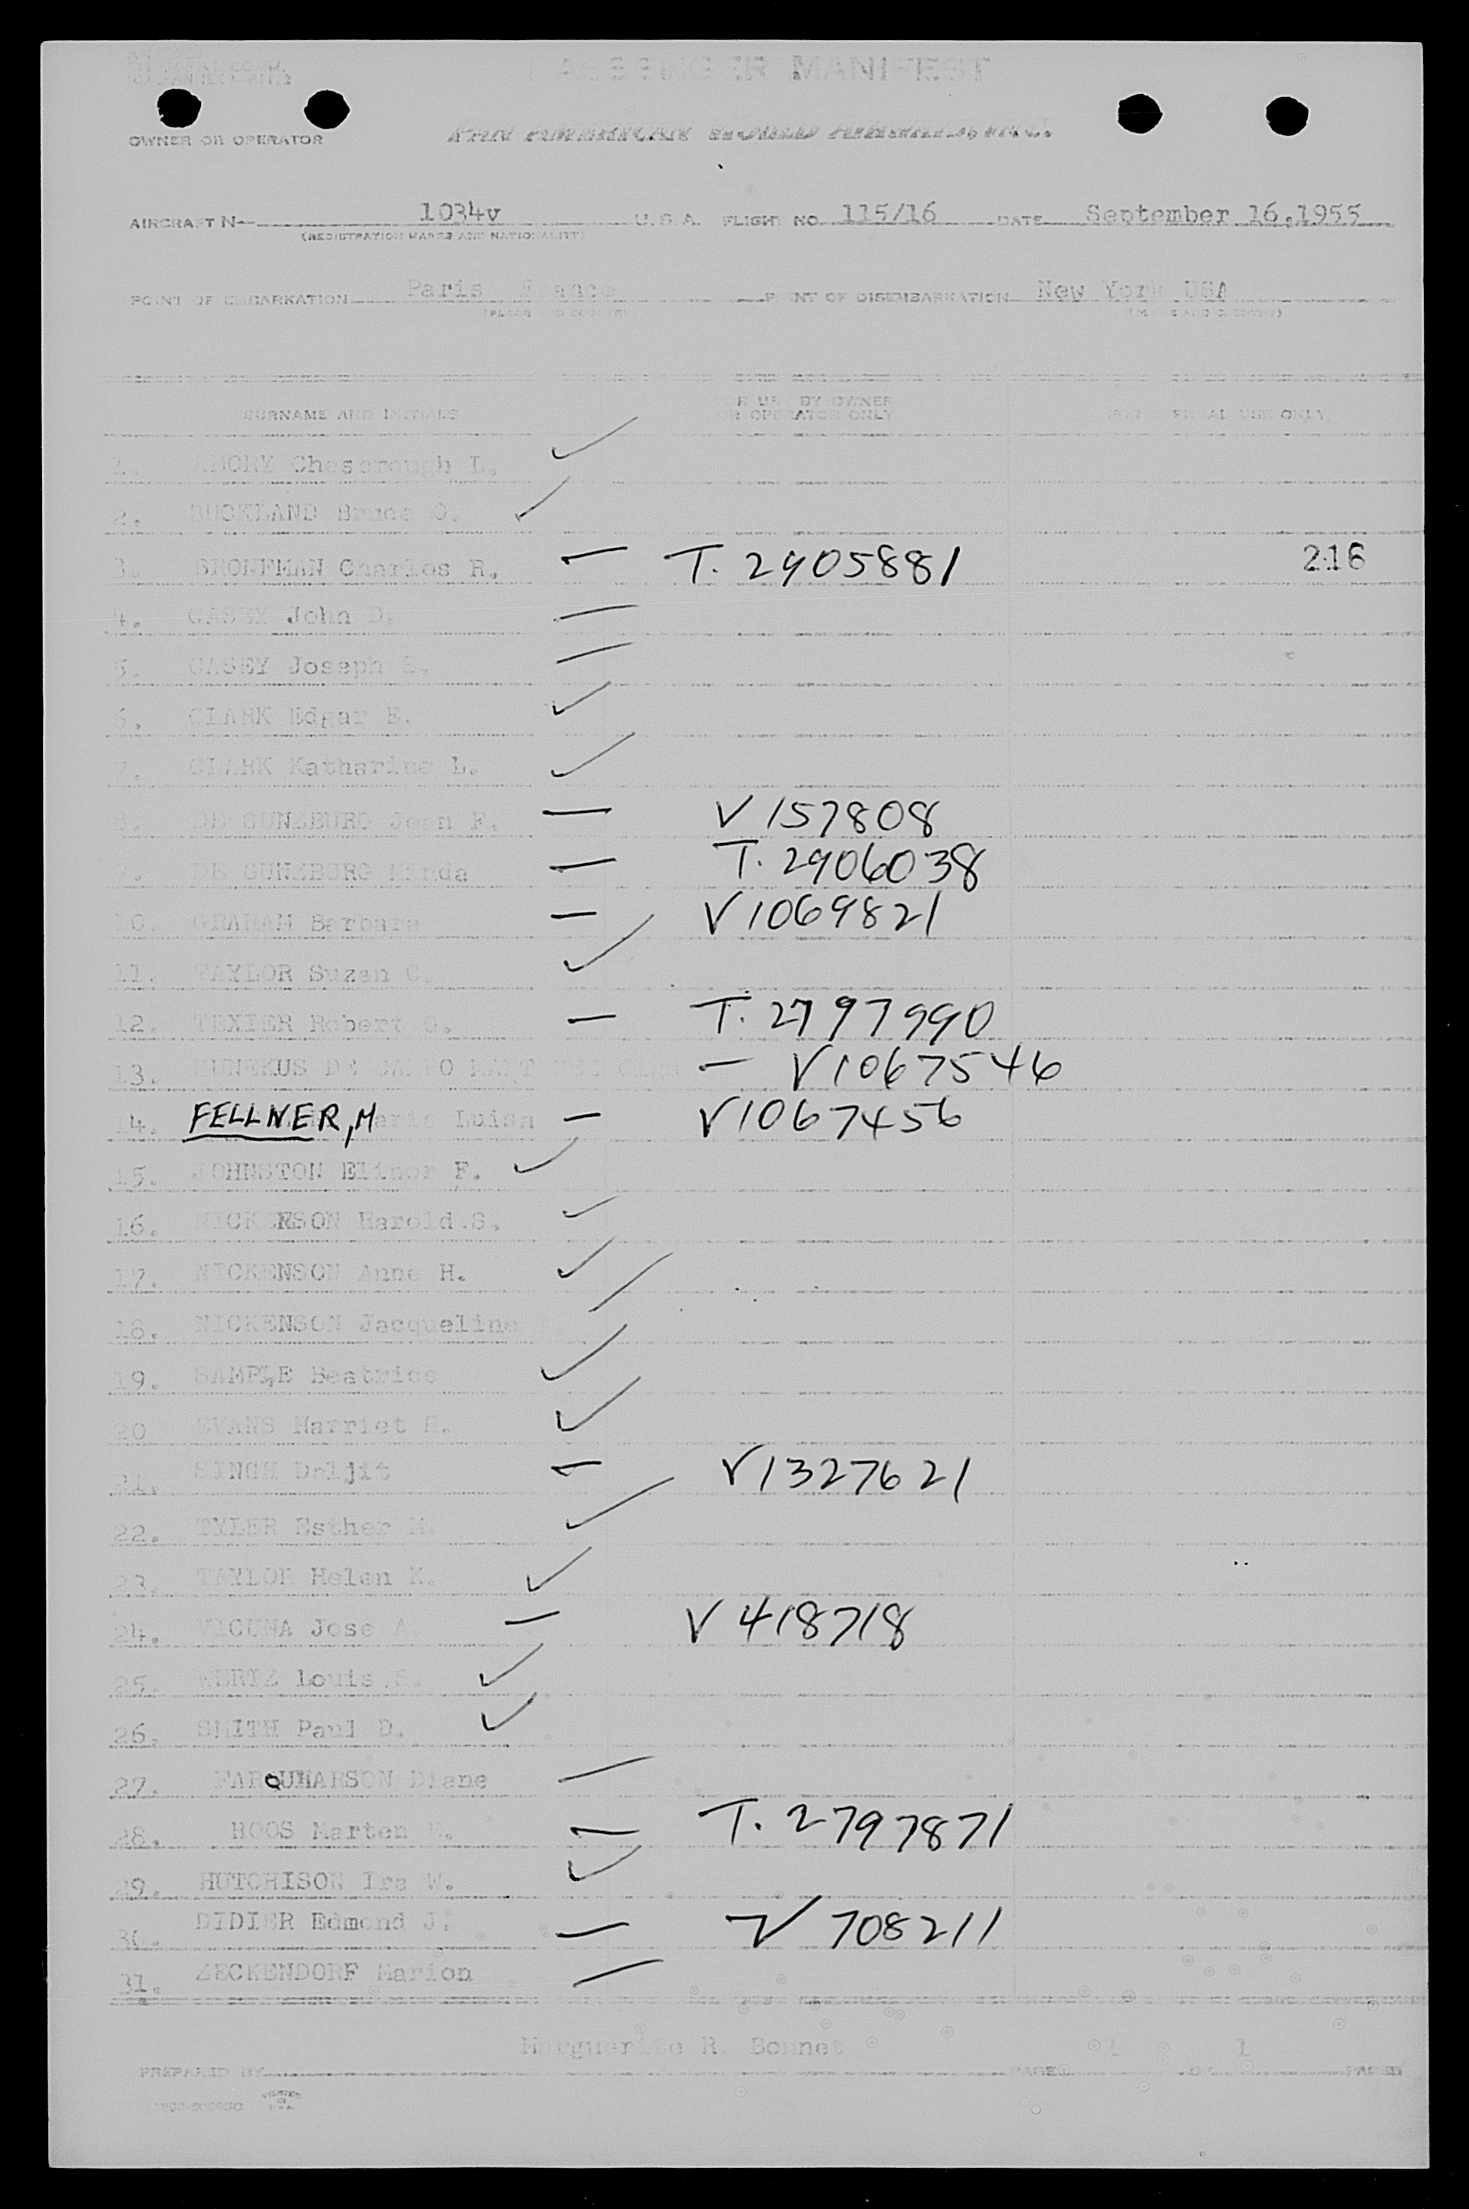 PASSENGER MANIFEST
OWNER OR OPERATOR PAN AMERICAN WORLD AIRWAYS, INC.
AIRCRAFT N- 1034v U.S.A. FLIGHT NO. 115/16 DATE September 16,1955
(REGISTRATION MARKS AND NATIONALITY)
POINT OF EMBARKATION Paris France POINT OF DISEMBARKATION New York USA
(PLACE AND COUNTRY) (PLACE AND COUNTRY)
SURNAME AND INITIALS FOR USE BY OWNER OR OPERATOR ONLY FOR OFFICIAL USE ONLY
1. AMORY Chesbrough L. ✓
2. BUCKLAND Bruce O. ✓
3. BRONFMAN Charles R. — T. 2905881 216
4. CASEY John D. —
5. CASEY Joseph —
6. CLARK Edgar E. ✓
7. CLARK Katharine L. ✓
8. DE GUNZBURG Jean F. — V 157808
9. DE GUNZBURG Minda — T. 2906038
10. GRAHAM Barbara — V1069821
11. TAYLOR Suzan C. ✓
12. TEXIER Robert G. — T. 2797990
13. — V1067546
14. FELLNER, M Maria Luisa — V1067456
15. JOHNSTON Elinor F. ✓
16. NICKENSON Harold S. ✓
17. NICKENSON Anne H. ✓
18. NICKENSON Jacqueline /
19. SAMPLE Beatrice ✓
20 EVANS Harriet H. ✓
21. SINGH Daljit — V1327621
22. TYLER Esther M. ✓
23. TAYLOR Helen K. ✓
24. VICUNA Jose A. — V 418718
25. WURTZ Louis S. ✓
26. SMITH Paul D. ✓
27. FARQUHARSON Diane —
28. HOOS Marten — T. 2797871
29. HUTCHISON Ira W. ✓
30. DIDIER Edmond J. — V 708211
31. ZECKENDORF Marion —
Marguerite R. Bonnet 1 1
PREPARED BY PAGE OF PAGES
PRINTED IN U.S.A.